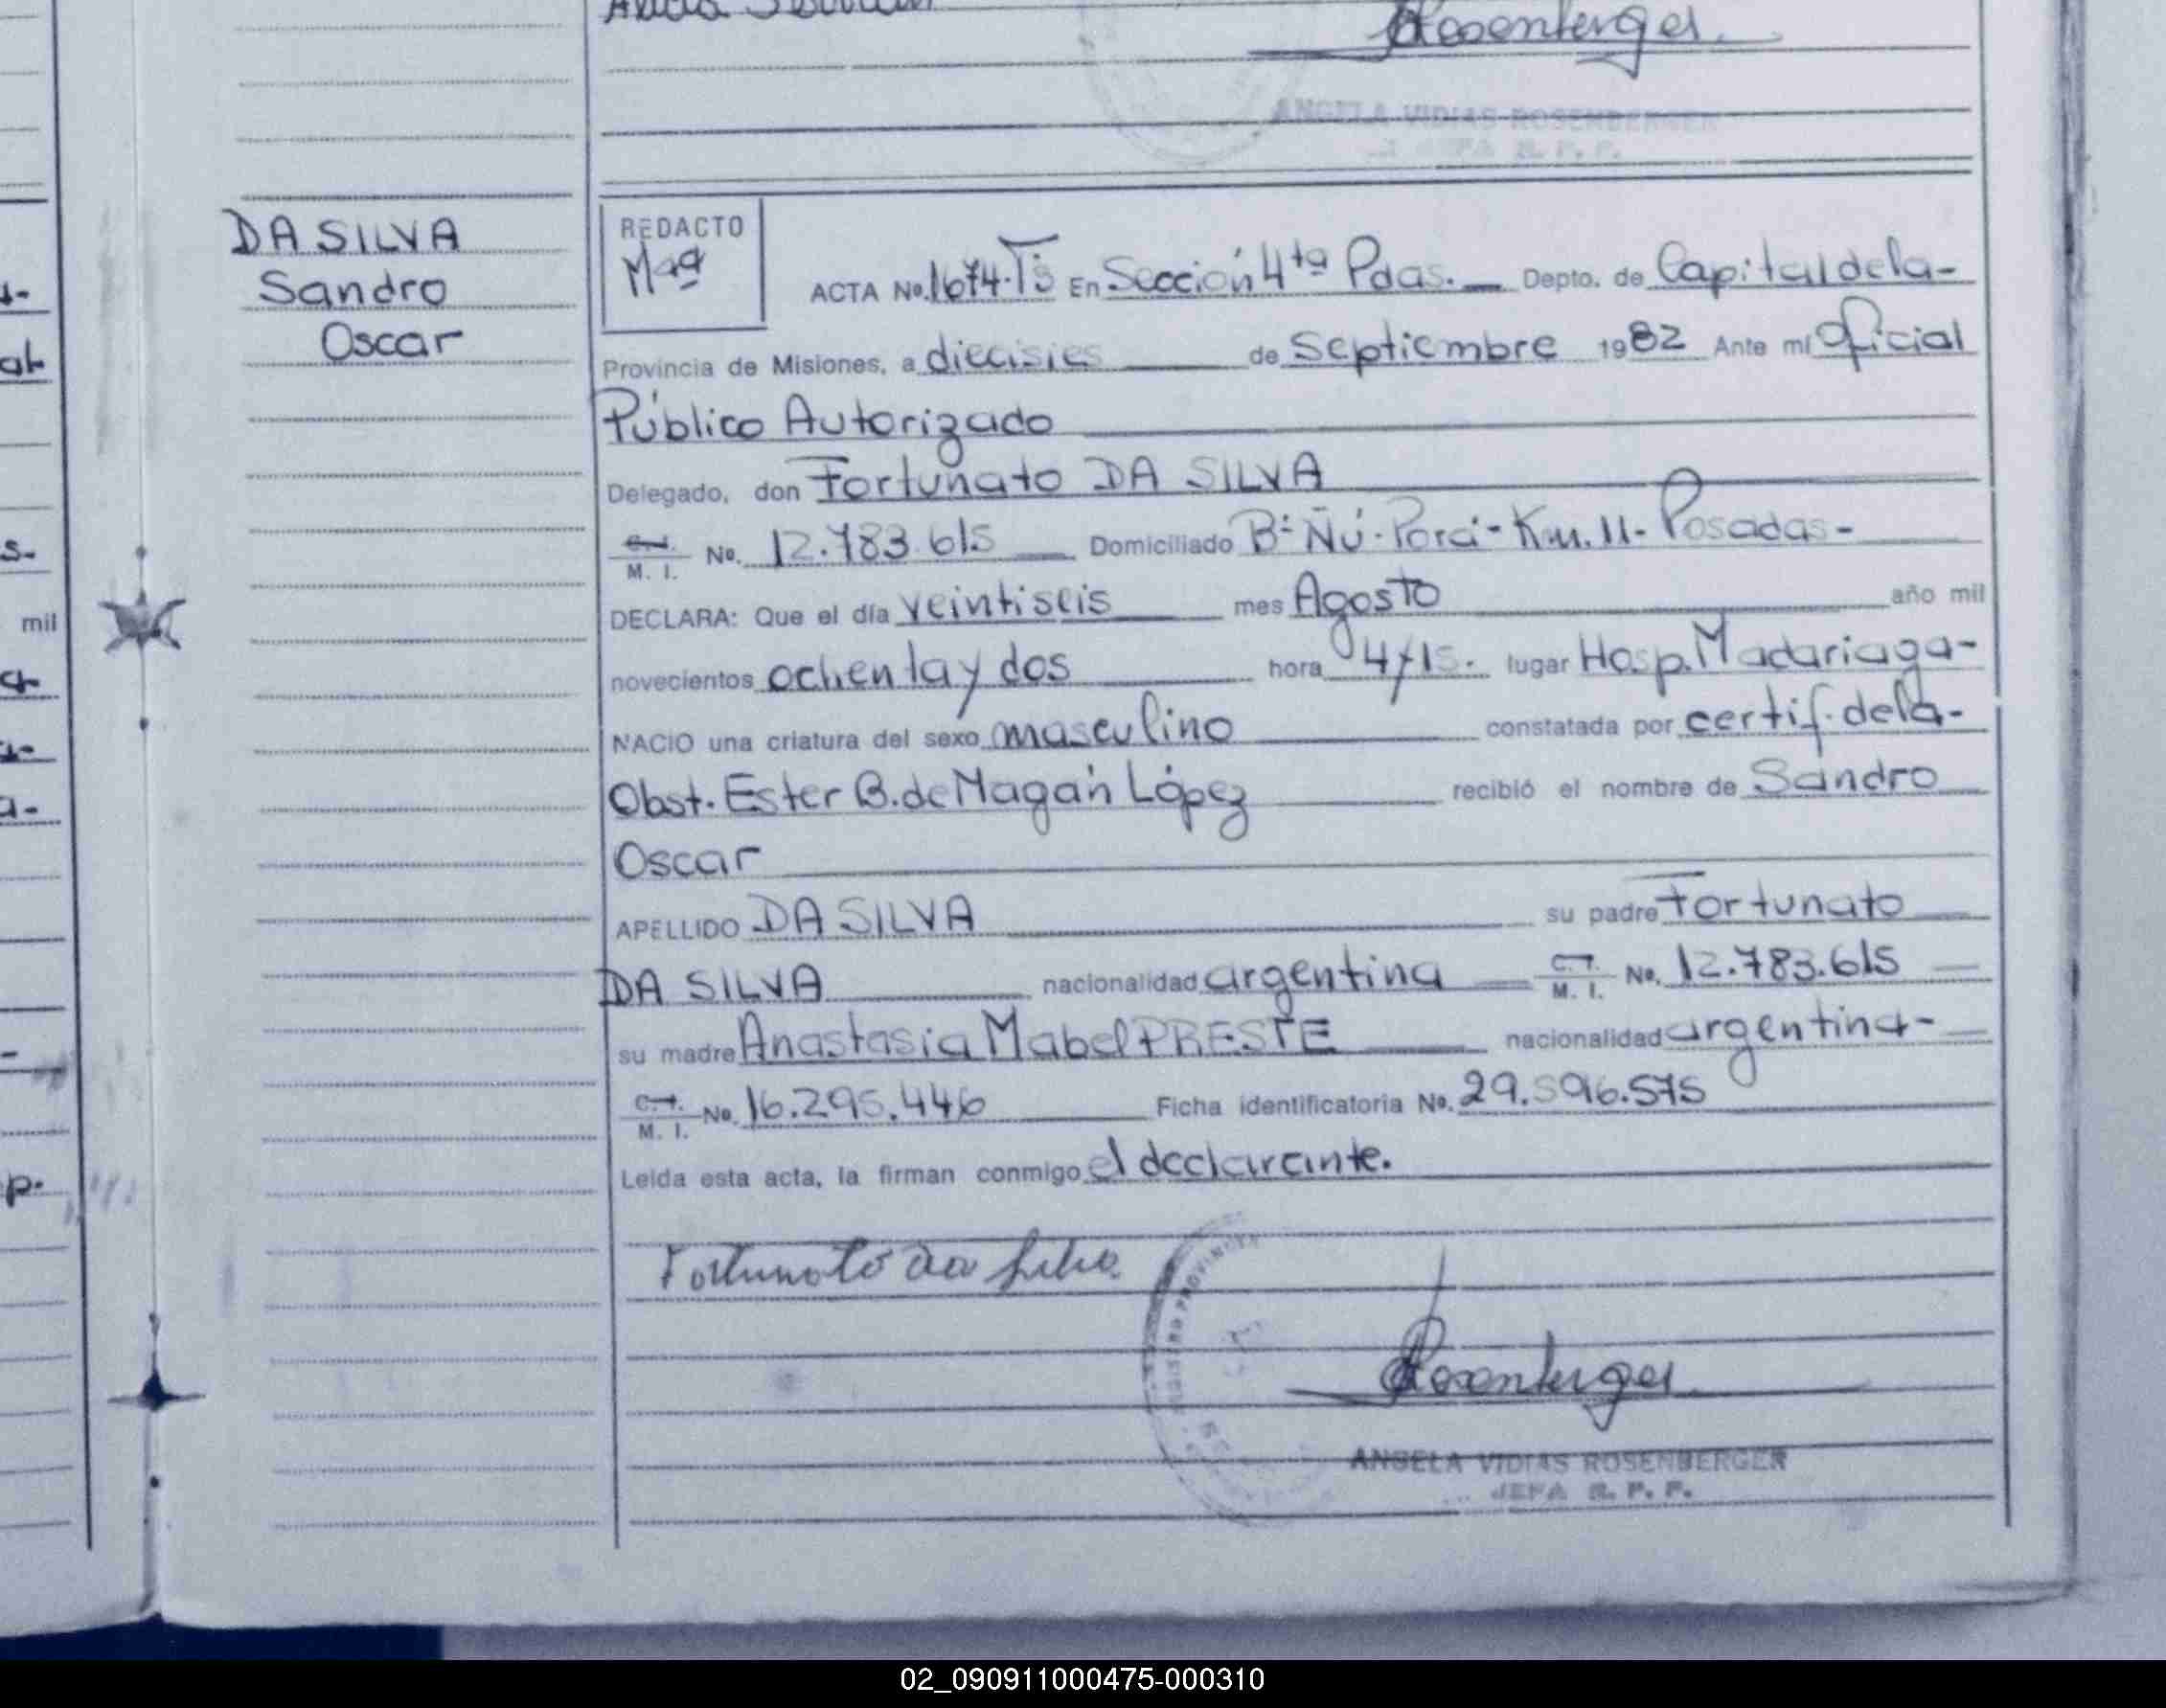 Rosenberger
ANGELA VIDIAS ROSENBERGER
JEFA R. P. P.
DA SILVA
Sandro
Oscar
REDACTO
ACTA No. 1674·Tº En Sección 4ta Pdas. Depto. de Capital de la-
Provincia de Misiones, a diecisies de Septiembre 1982 Ante mí Oficial
Público Autorizado
Delegado, don Fortunato DA SILVA
C. I. M. I. No. 12.783.615 Domiciliado Bº Ñú-Porá-Km.11-Posadas-
DECLARA: Que el día veintiseis mes Agosto año mil
novecientos ochenta y dos hora 04/15. lugar Hosp. Madariaga-
NACIO una criatura del sexo masculino constatada por certif. de la-
Obst. Ester B. de Magán López recibió el nombre de Sandro
Oscar
APELLIDO DA SILVA su padre Fortunato
DA SILVA nacionalidad argentina C. I. M. I. No. 12.783.615
su madre Anastasia Mabel PRESTE nacionalidad argentina-
C. I. M. I. No. 16.295.446 Ficha identificatoria No. 29.596.575
Leída esta acta, la firman conmigo el declarante.
Fortunato da Silva
Rosenberger
ANGELA VIDIAS ROSENBERGER
JEFA R. P. P.
mil
p.
02_090911000475-000310